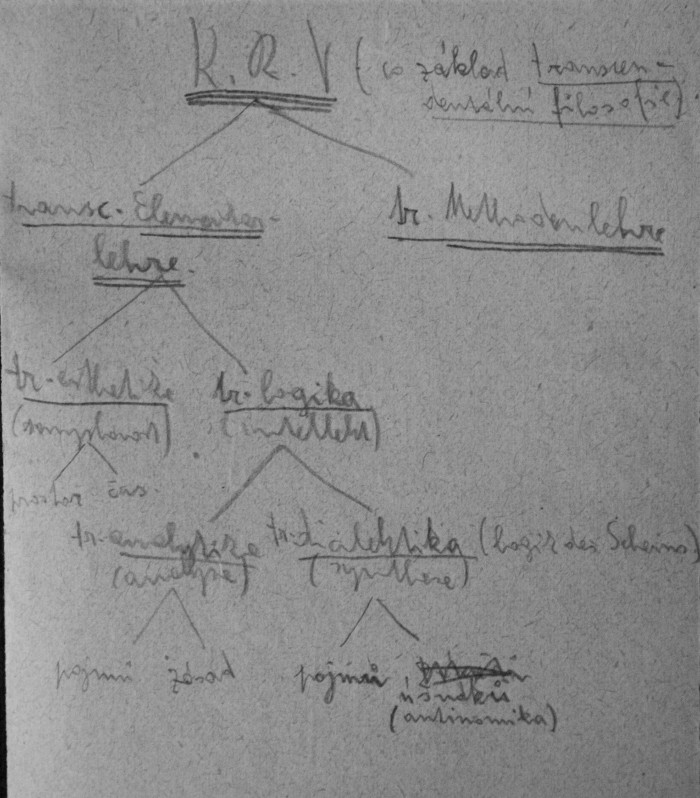 K. R. V (co základ transcen-
dentální filosofie)
transc. Elementar-
lehre.
tr. Methodenlehre
tr. esthetika
(smyslovost)
tr. logika
(intellekt)
prostor čas.
tr. analytika
(analyse)
tr. dialektika (Logik des Scheins)
(synthese)
pojmů zásad
pojmů
úsudků
(antinomika)